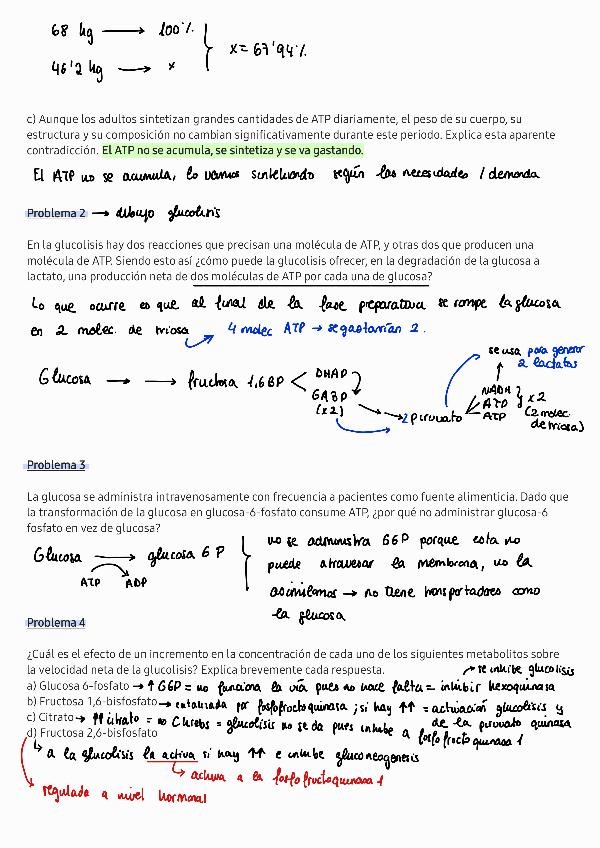 68 kg → 100%
46'2 kg → x
x = 67'94%
c) Aunque los adultos sintetizan grandes cantidades de ATP diariamente, el peso de su cuerpo, su
estructura y su composición no cambian significativamente durante este periodo. Explica esta aparente
contradicción. El ATP no se acumula, se sintetiza y se va gastando.
El ATP no se acumula, lo vamos sintetizando según las necesidades / demanda
Problema 2 → dibujo glucolisis
En la glucolisis hay dos reacciones que precisan una molécula de ATP, y otras dos que producen una
molécula de ATP. Siendo esto así ¿cómo puede la glucolisis ofrecer, en la degradación de la glucosa a
lactato, una producción neta de dos moléculas de ATP por cada una de glucosa?
Lo que ocurre es que al final de la fase preparativa se rompe la glucosa
en 2 molec. de triosa → 4 molec ATP → se gastarían 2.
se usa para generar
2 lactatos
Glucosa → → fructosa 1,6BP < DHAP
GA3P
(x2)
→ → 2 piruvato
NADH
ATP
ATP
x2
(2 molec.
de triosa)
Problema 3
La glucosa se administra intravenosamente con frecuencia a pacientes como fuente alimenticia. Dado que
la transformación de la glucosa en glucosa-6-fosfato consume ATP, ¿por qué no administrar glucosa-6
fosfato en vez de glucosa?
Glucosa → glucosa 6 P
ATP ADP
no se administra G6P porque esta no
puede atravesar la membrana, no la
asimilamos → no tiene transportadores como
la glucosa
Problema 4
¿Cuál es el efecto de un incremento en la concentración de cada uno de los siguientes metabolitos sobre
la velocidad neta de la glucolisis? Explica brevemente cada respuesta.
→ se inhibe glucolisis
a) Glucosa 6-fosfato → ↑ G6P = no funciona la vía pues no hace falta = inhibir hexoquinasa
b) Fructosa 1,6-bisfosfato → catalizada por fosfofructoquinasa; si hay ↑↑ = activación glucolisis y
de la piruvato quinasa
c) Citrato → ↑↑ citrato = no C Krebs = glucolisis no se da pues inhibe a fosfofructoquinasa 1
d) Fructosa 2,6-bisfosfato
↳ a la glucolisis la activa si hay ↑↑ e inhibe gluconeogenesis
↳ activa a la fosfofructoquinasa 1
regulada a nivel hormonal